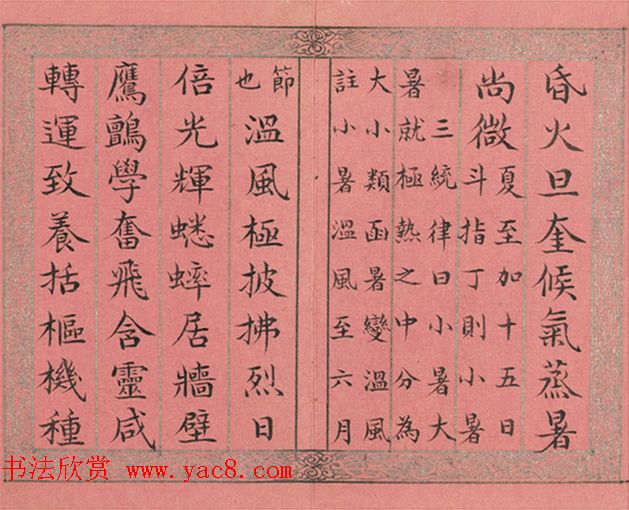 昏火旦奎候氣蒸暑
尚微
夏至加十五日
斗指丁則小暑
三統律曰小暑大
暑就極熱之中分為
大小類函暑變溫風
註小暑溫風至六月
節也溫風極披拂烈日
倍光輝蟋蟀居牆壁
鷹鸇學奮飛含靈咸
轉運致養括樞機種
书法欣赏 www.yac8.com